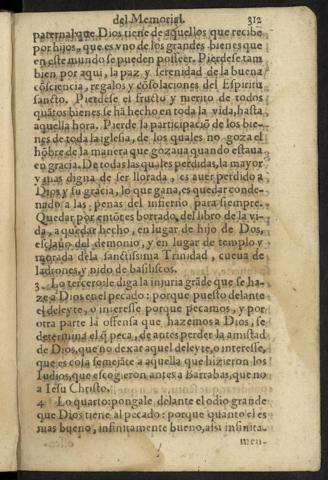 del Memorial. 312
paternal que Dios tiene de aquellos que recibe
por hijos, que es vno de los grandes bienes que
en este mundo se pueden posseer. Pierdese tam
bien por aqui, la paz y serenidad de la buena
cõsciencia, regalos y cõsolaciones del Espiritu
sancto. Pierdese el fructo y merito de todos
quãtos bienes se hã hecho en toda la vida, hasta
aquella hora. Pierde la participaciõ de los bie-
nes de toda la iglesia, de los quales no goza el
hõbre de la manera que gozaua quando estaua
en gracia. De todas las quales perdidas, la mayor
y mas digna de ser llorada, es auer perdido a
Dios y su gracia, lo que gana, es quedar conde-
nado a las penas del infierno para siempre.
Quedar por entõces borrado, del libro de la vi-
da, a quedar hecho, en lugar de hijo de Dos,
esclauo del demonio, y en lugar de templo y
morada dela sanctissima Trinidad, cueua de
ladrones, y nido de basiliscos.
3 Lo tercero: le diga la injuria grãde que se ha-
ze a Dios en el pecado: porque puesto delante
el deleyte, o interesse porque pecamos, y por
otra parte la offensa que hazemos a Dios, se
determina el q̃ peca, de antes perder la amistad
de Dios, que no dexar aquel deleyte, o interesse,
que es cosa semejãte a aquella que hizieron los
Iudios, que escogieron antes a Barrabas, que no
a Iesu Christo.
4 Lo quarto: pongale delante el odio grande
que Dios tiene al pecado: porque quanto el es
mas bueno, infinitamente bueno, assi infinita-
men-